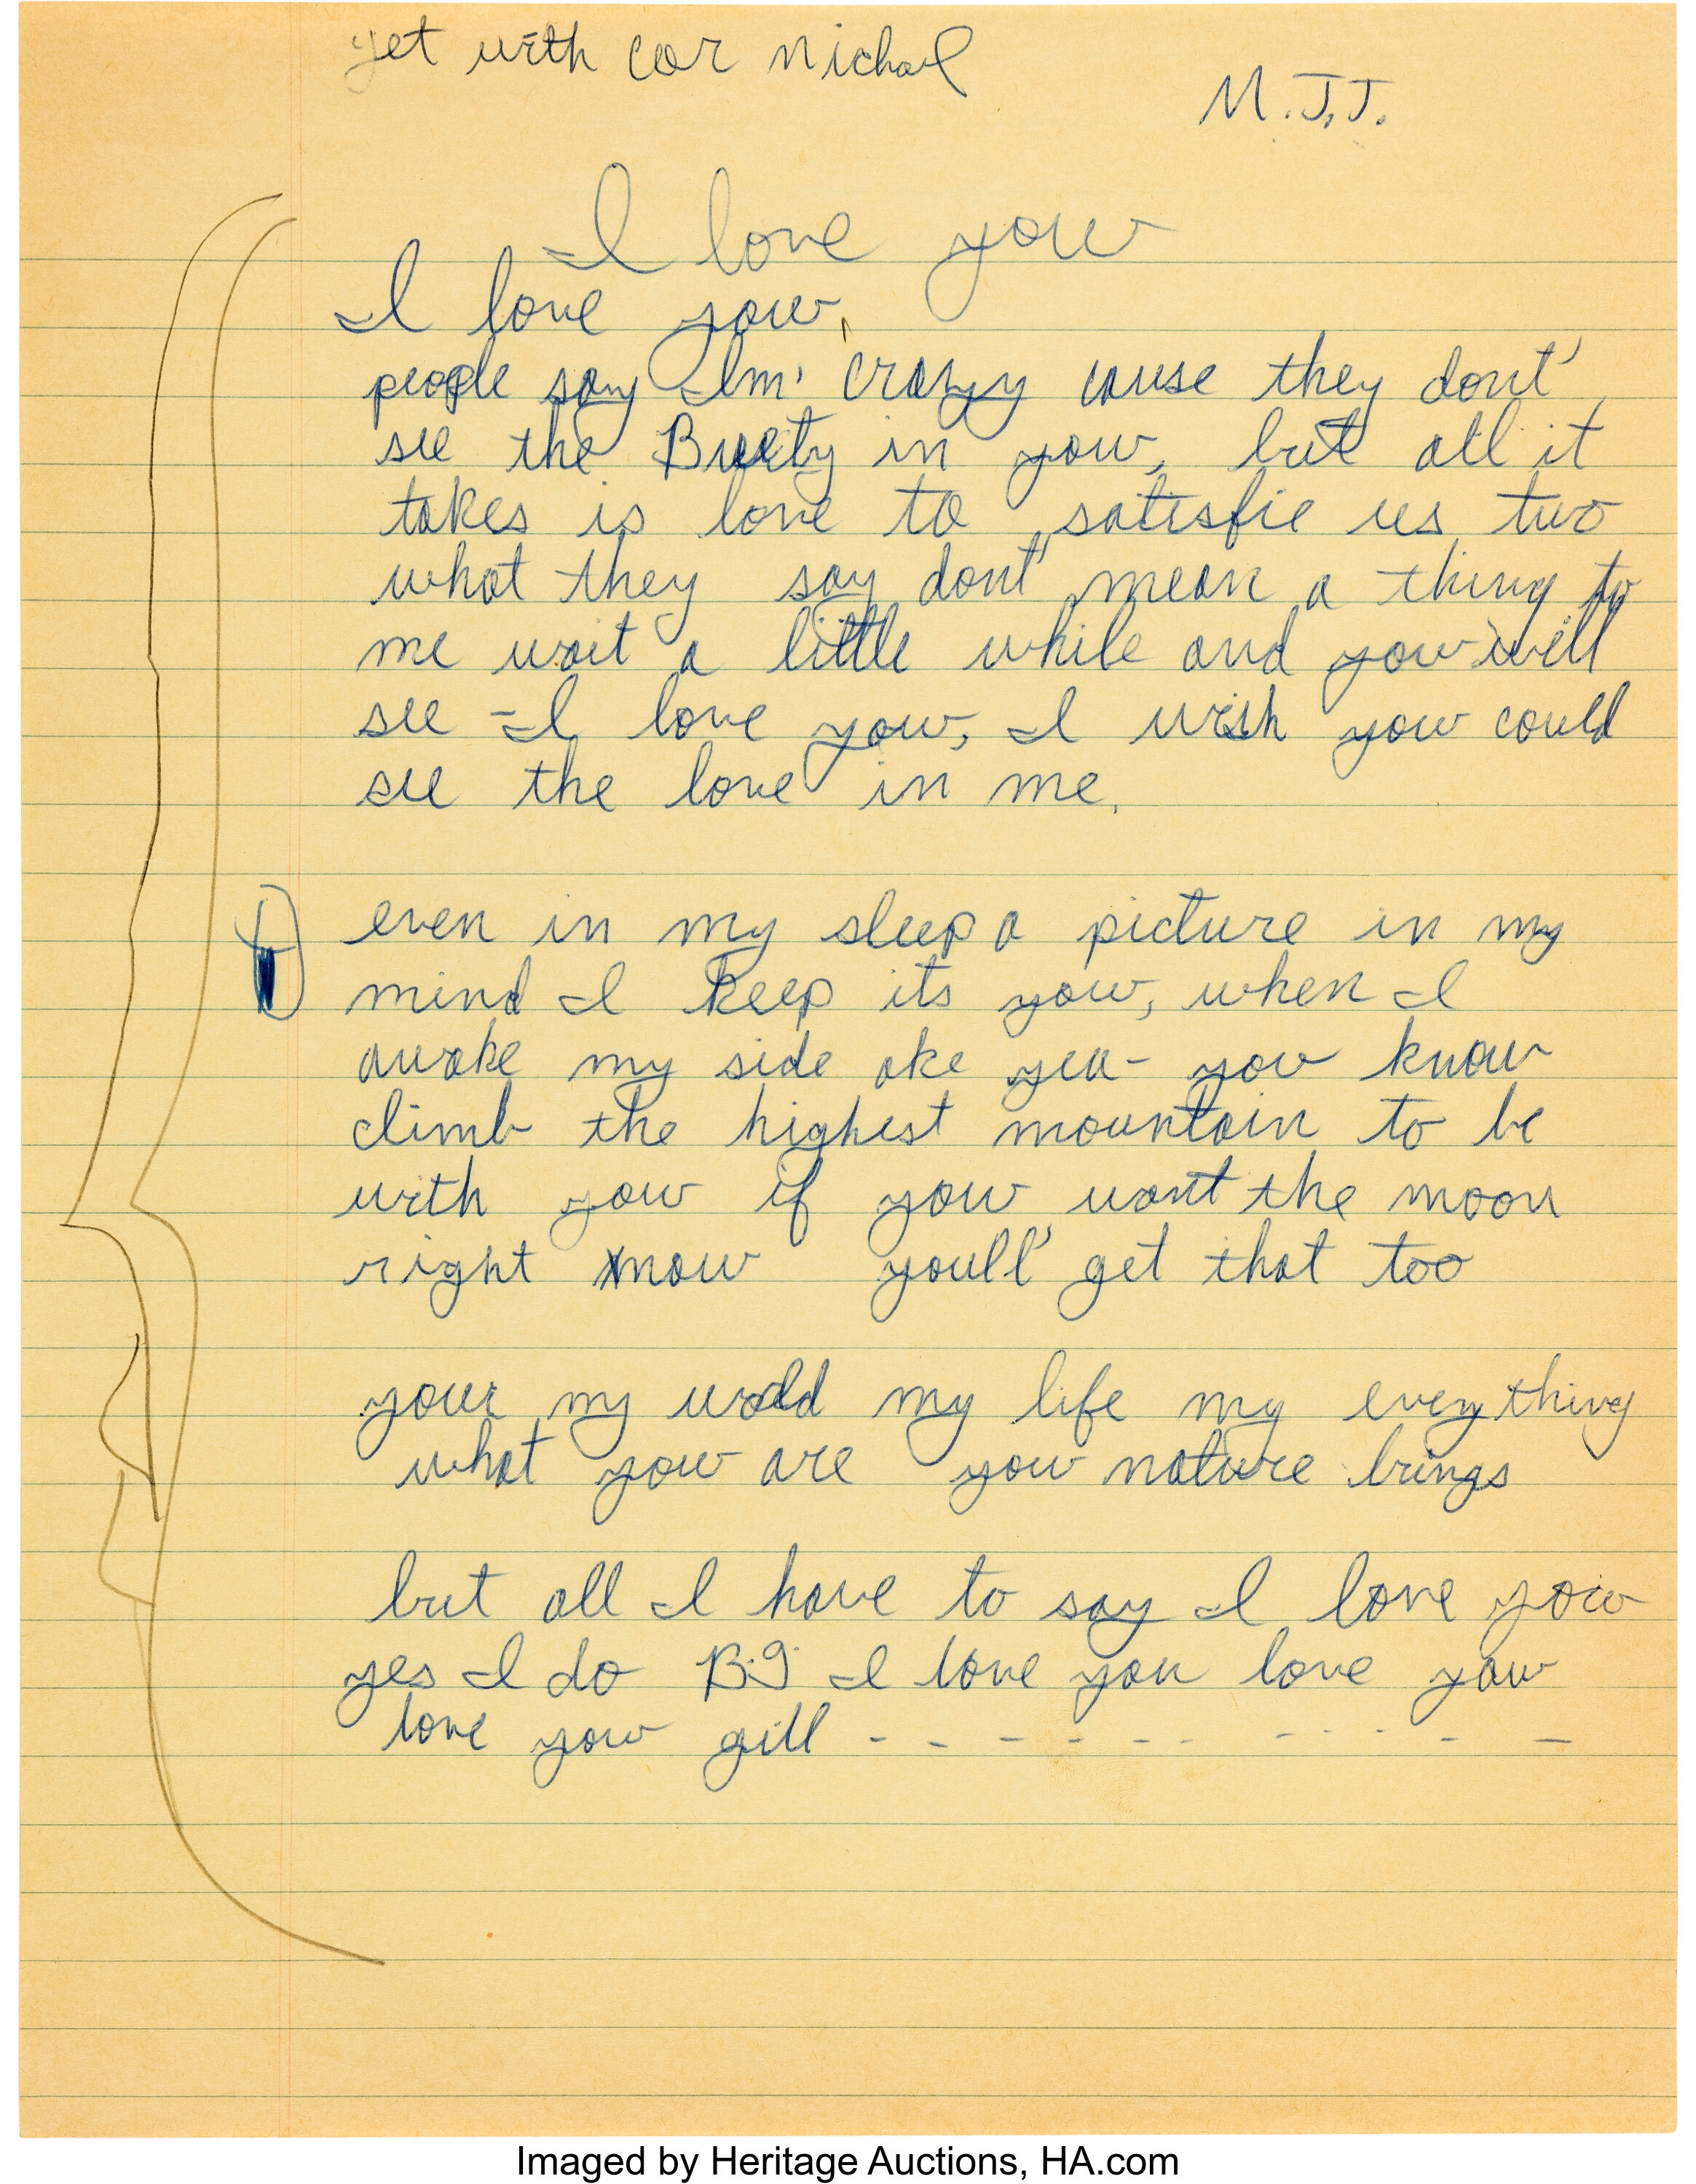 yet with car Michael
M.J.J.
I love you
I love you,
people say Im' crazy cause they dont'
see the Buety in you, but all it
takes is love to satisfie us two
what they say dont' mean a thing to
me wait a little while and you will
see I love you, I wish you could
see the love in me.
even in my sleep a picture in my
mind I keep its you, when I
awake my side ake yea- you know
climb the highest mountain to be
with you if you want the moon
right now youll' get that too
your my world my life my everything
what you are you nature brings
but all I have to say I love you
yes I do B.G I love you love you
love you gill - - - - - - - - - - -
Imaged by Heritage Auctions, HA.com